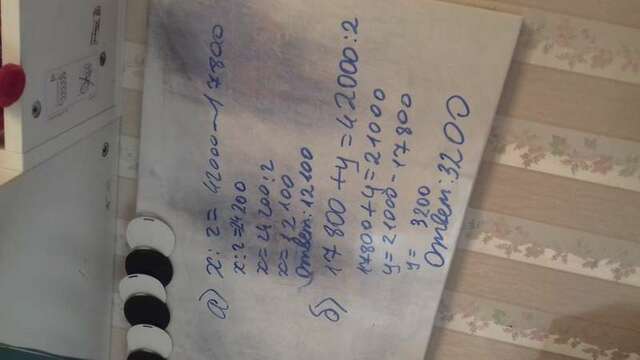 а) х:2= 42000-17800
х:2=24200
х=24200:2
х=12100
Ответ:12100
б) 17800+у=42000:2
17800+у=21000
у=21000-17800
у= 3200
Ответ:3200